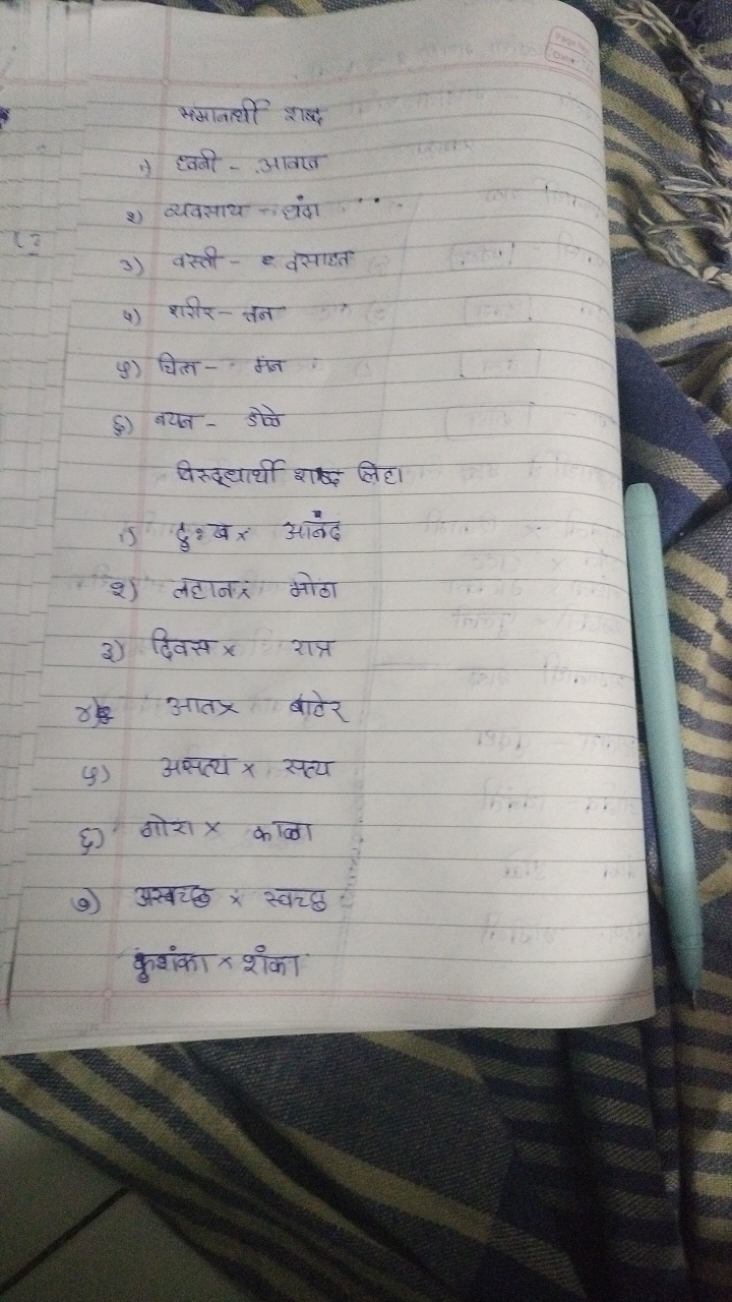 समानार्थी शब्द
१) ध्वनी - आवाज
२) व्यवसाय - धंदा
३) वस्ती - वसाहत
४) शरीर - तन
५) चित्त - मन
६) नयन - डोळे
विरुद्धार्थी शब्द लिहा
१) दुःख × आनंद
२) लहान × मोठा
३) दिवस × रात्र
४) आत × बाहेर
५) असत्य × सत्य
६) गोरा × काळा
७) अस्वच्छ × स्वच्छ
कुशंका × शंका